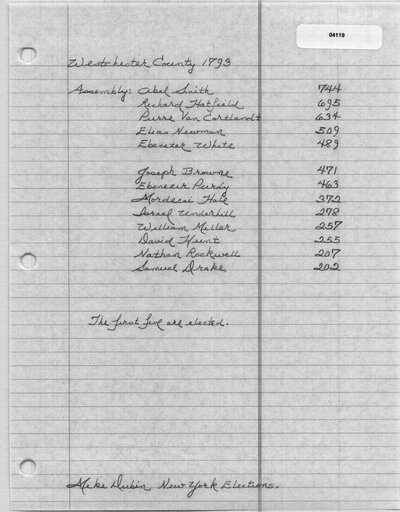 04119
Westchester County 1793
Assembly: Abel Smith 744
Richard Hatfield 695
Pierre Van Cortlandt 634
Elias Newman 509
Ebenezer White 489
Joseph Browne 471
Ebenezer Purdy 463
Mordecai Hale 372
Israel Underhill 278
William Miller 257
David Hunt 255
Nathan Rockwell 207
Samuel Drake 202
The first five are elected.
Mike Dubin New York Elections.